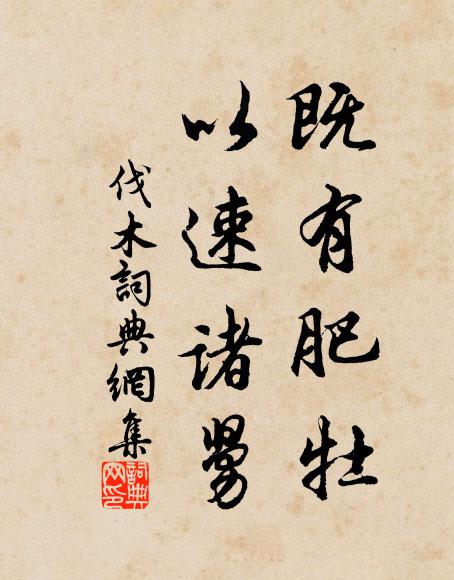 既有肥牡
以速诸舅
伐木詞典網集
詞典
网印